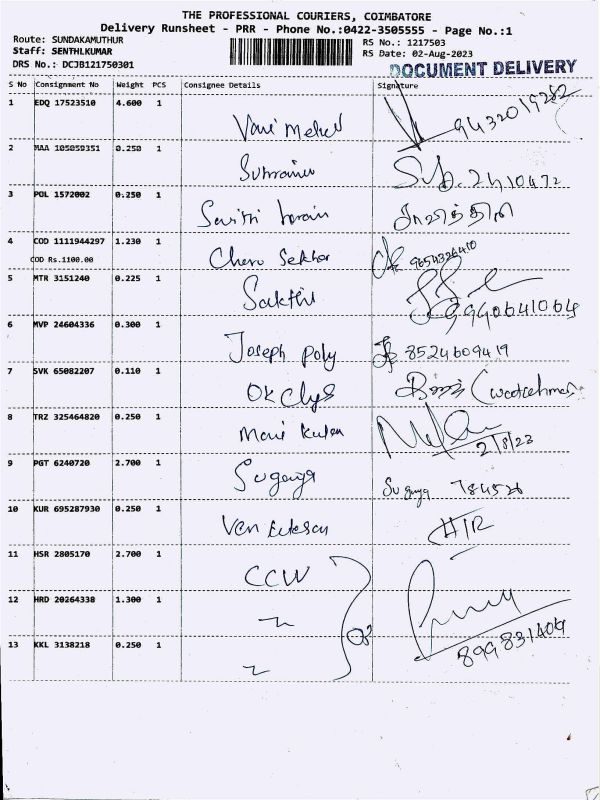 THE PROFESSIONAL COURIERS, COIMBATORE
Delivery Runsheet - PRR - Phone No.:0422-3505555 - Page No.:1
Route: SUNDAKAMUTHUR
RS No.: 1217503
Staff: SENTHLKUMAR
RS Date: 02-Aug-2023
DRS No.: DCJB121750301
DOCUMENT DELIVERY
S No Consignment No Weight PCS Consignee Details Signature
1 EDQ 17523510 4.600 1
9432019282
2 MAA 105059351 0.250 1
3 POL 1572002 0.250 1
4 COD 1111944297 1.230 1 Sekhar
COD Rs.1100.00
5 MTR 3151240 0.225 1 Sakthi
9940641064
6 MVP 24604336 0.300 1 Joseph Poly 8524609419
7 SVK 65082207 0.110 1
8 TRZ 325464820 0.250 1 Mani
2/8/23
9 PGT 6240720 2.700 1 Suganya Suganya 784526
10 KUR 695287930 0.250 1
11 HSR 2805170 2.700 1 CCW
12 HRD 20264338 1.300 1
13 KKL 3138218 0.250 1